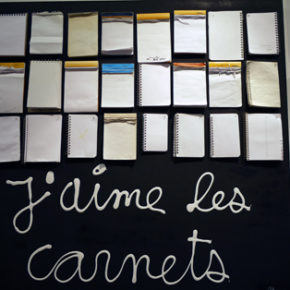 j'aime les
carnets